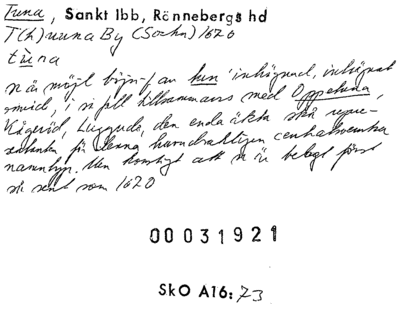 Tuna, Sankt Ibb, Rönnebergs hd
T(h)uuna By (Sochn) 1620
tùna
n är möjl böjn-f av tun 'inhägnad, inhägnat
område', i så fall tillsammans med Oppetuna,
Kågeröd, Luggude, den enda äkta skå repre-
sentanten för denna huvudsakligen centralsvenska
namntyp. Men konstigt att n är belagt först
så sent som 1620
00031921
SkO A16: 73